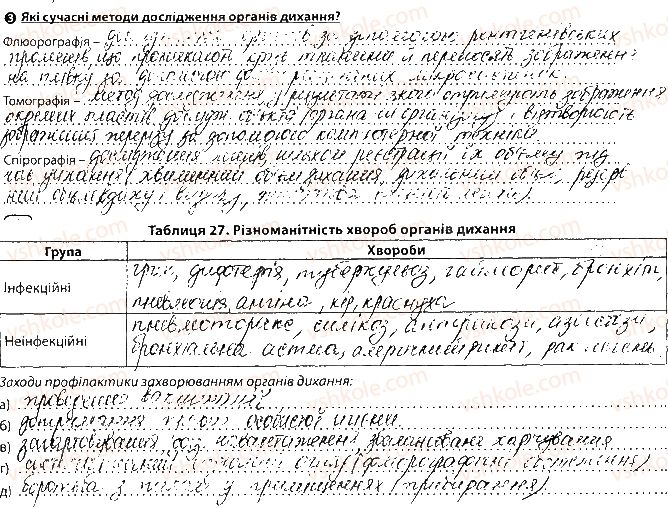 3 Які сучасні методи дослідження органів дихання?
Флюорографія – дослідження органів за допомогою рентгенівських
променів, що проникають крізь тканини й переносять зображення
на плівку за допомогою
Томографія – метод дослідження, у результаті якого отримують зображення
окремих пластів об'єкта (органа чи організму) і відтворюють
за допомогою комп'ютерної техніки
Спірографія – дослідження легень шляхом реєстрації їх об'єму під
час дихання (хвилинний об'єм дихання, дихальний об'єм, резер
вний об'єм вдиху і видиху,
Таблиця 27. Різноманітність хвороб органів дихання
Група Хвороби
Інфекційні грип, дифтерія, туберкульоз, гайморит, бронхіт,
пневмонія, ангіна, кір, краснуха
Неінфекційні пневмоторакс, силікоз, антракози, азбестози,
бронхіальна астма, алергічний риніт, рак легень
Заходи профілактики захворюванням органів дихання:
а) проведення вакцинації
б) дотримання правил особистої гігієни
в) загартовування збалансоване харчування
г) огляд (флюорографічні обстеження)
д) боротьба з пилом у приміщеннях (прибирання)
vshkole.com